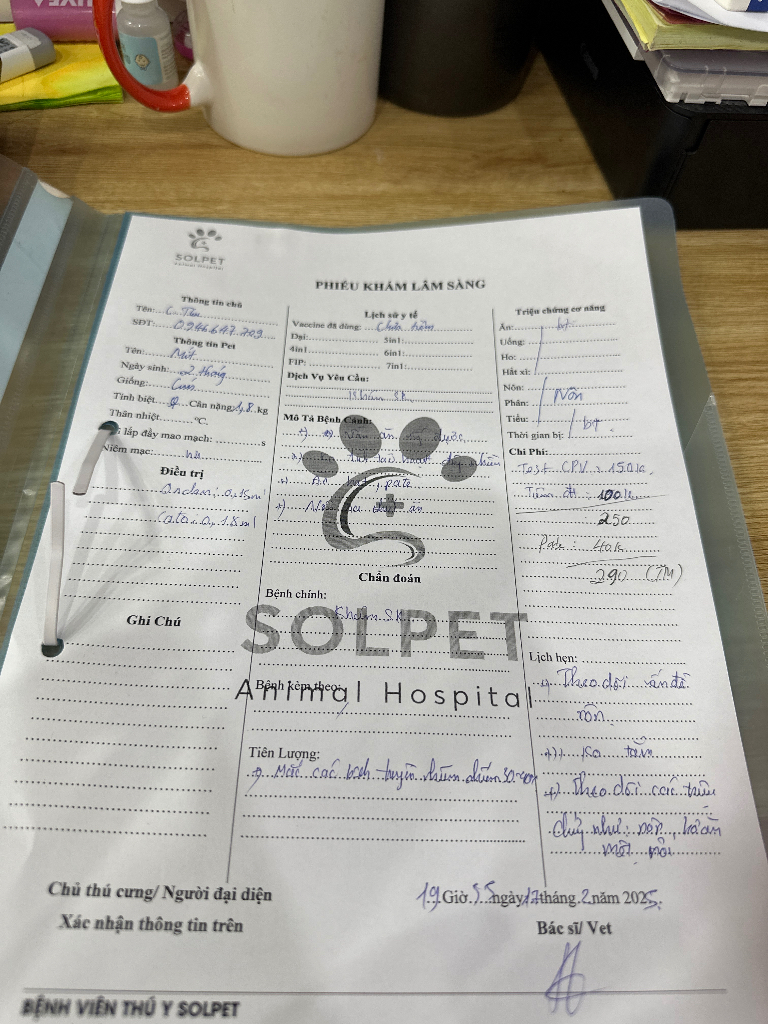 SOLPET
Animal Hospital
PHIẾU KHÁM LÂM SÀNG
Thông tin chủ
Tên: C. Thu
SĐT: 0946.647.709
Thông tin Pet
Tên: Mít
Ngày sinh: 2 tháng
Giống: Cún
Tính biệt: ♀ Cân nặng: 1,8 kg
Thân nhiệt °C.
lấp đầy mao mạch: s
Niêm mạc: hh
Điều trị
0,15ml
Cato: 1.8ml
Ghi Chú
Lịch sử y tế
Vaccine đã dùng: Chưa tiêm
Dại: 5in1:
4in1: 6in1:
FIP: 7in1:
Dịch Vụ Yêu Cầu:
Khám SK
Mô Tả Bệnh Cảnh:
+) ăn
+)
+) Ăn hạt, pate
+) Nôn ăn
SOLPET
Animal Hospital
Chẩn đoán
Bệnh chính:
Khám SK
Bệnh kèm theo:
Tiên Lượng:
+) Mắc các bệnh truyền nhiễm
Triệu chứng cơ năng
Ăn: bt
Uống:
Ho:
Hắt xì:
Nôn: Nôn
Phân:
Tiểu: bt
Thời gian bị:
Chi Phí:
Test CPV: 150k
Tiêm đt: 100k
250
Pate: 40k
290 (TM)
Lịch hẹn:
+) Theo dõi vấn đề
nôn
+) ko tắm
+) Theo dõi các triệu
chứng như: nôn, bỏ ăn
mệt mỏi
Chủ thú cưng/ Người đại diện
Xác nhận thông tin trên
19 Giờ 55 ngày 17 tháng 2 năm 2025.
Bác sĩ/ Vet
BỆNH VIỆN THÚ Y SOLPET